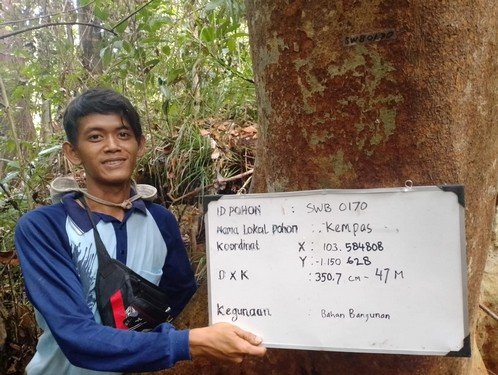 SWB 0170
ID POHON : SWB 0170
Nama Lokal Pohon : Kempas
Koordinat X : 103.584808
Y : -1.150.628
D X K : 350.7 cm - 47 M
Kegunaan : Bahan Bangunan